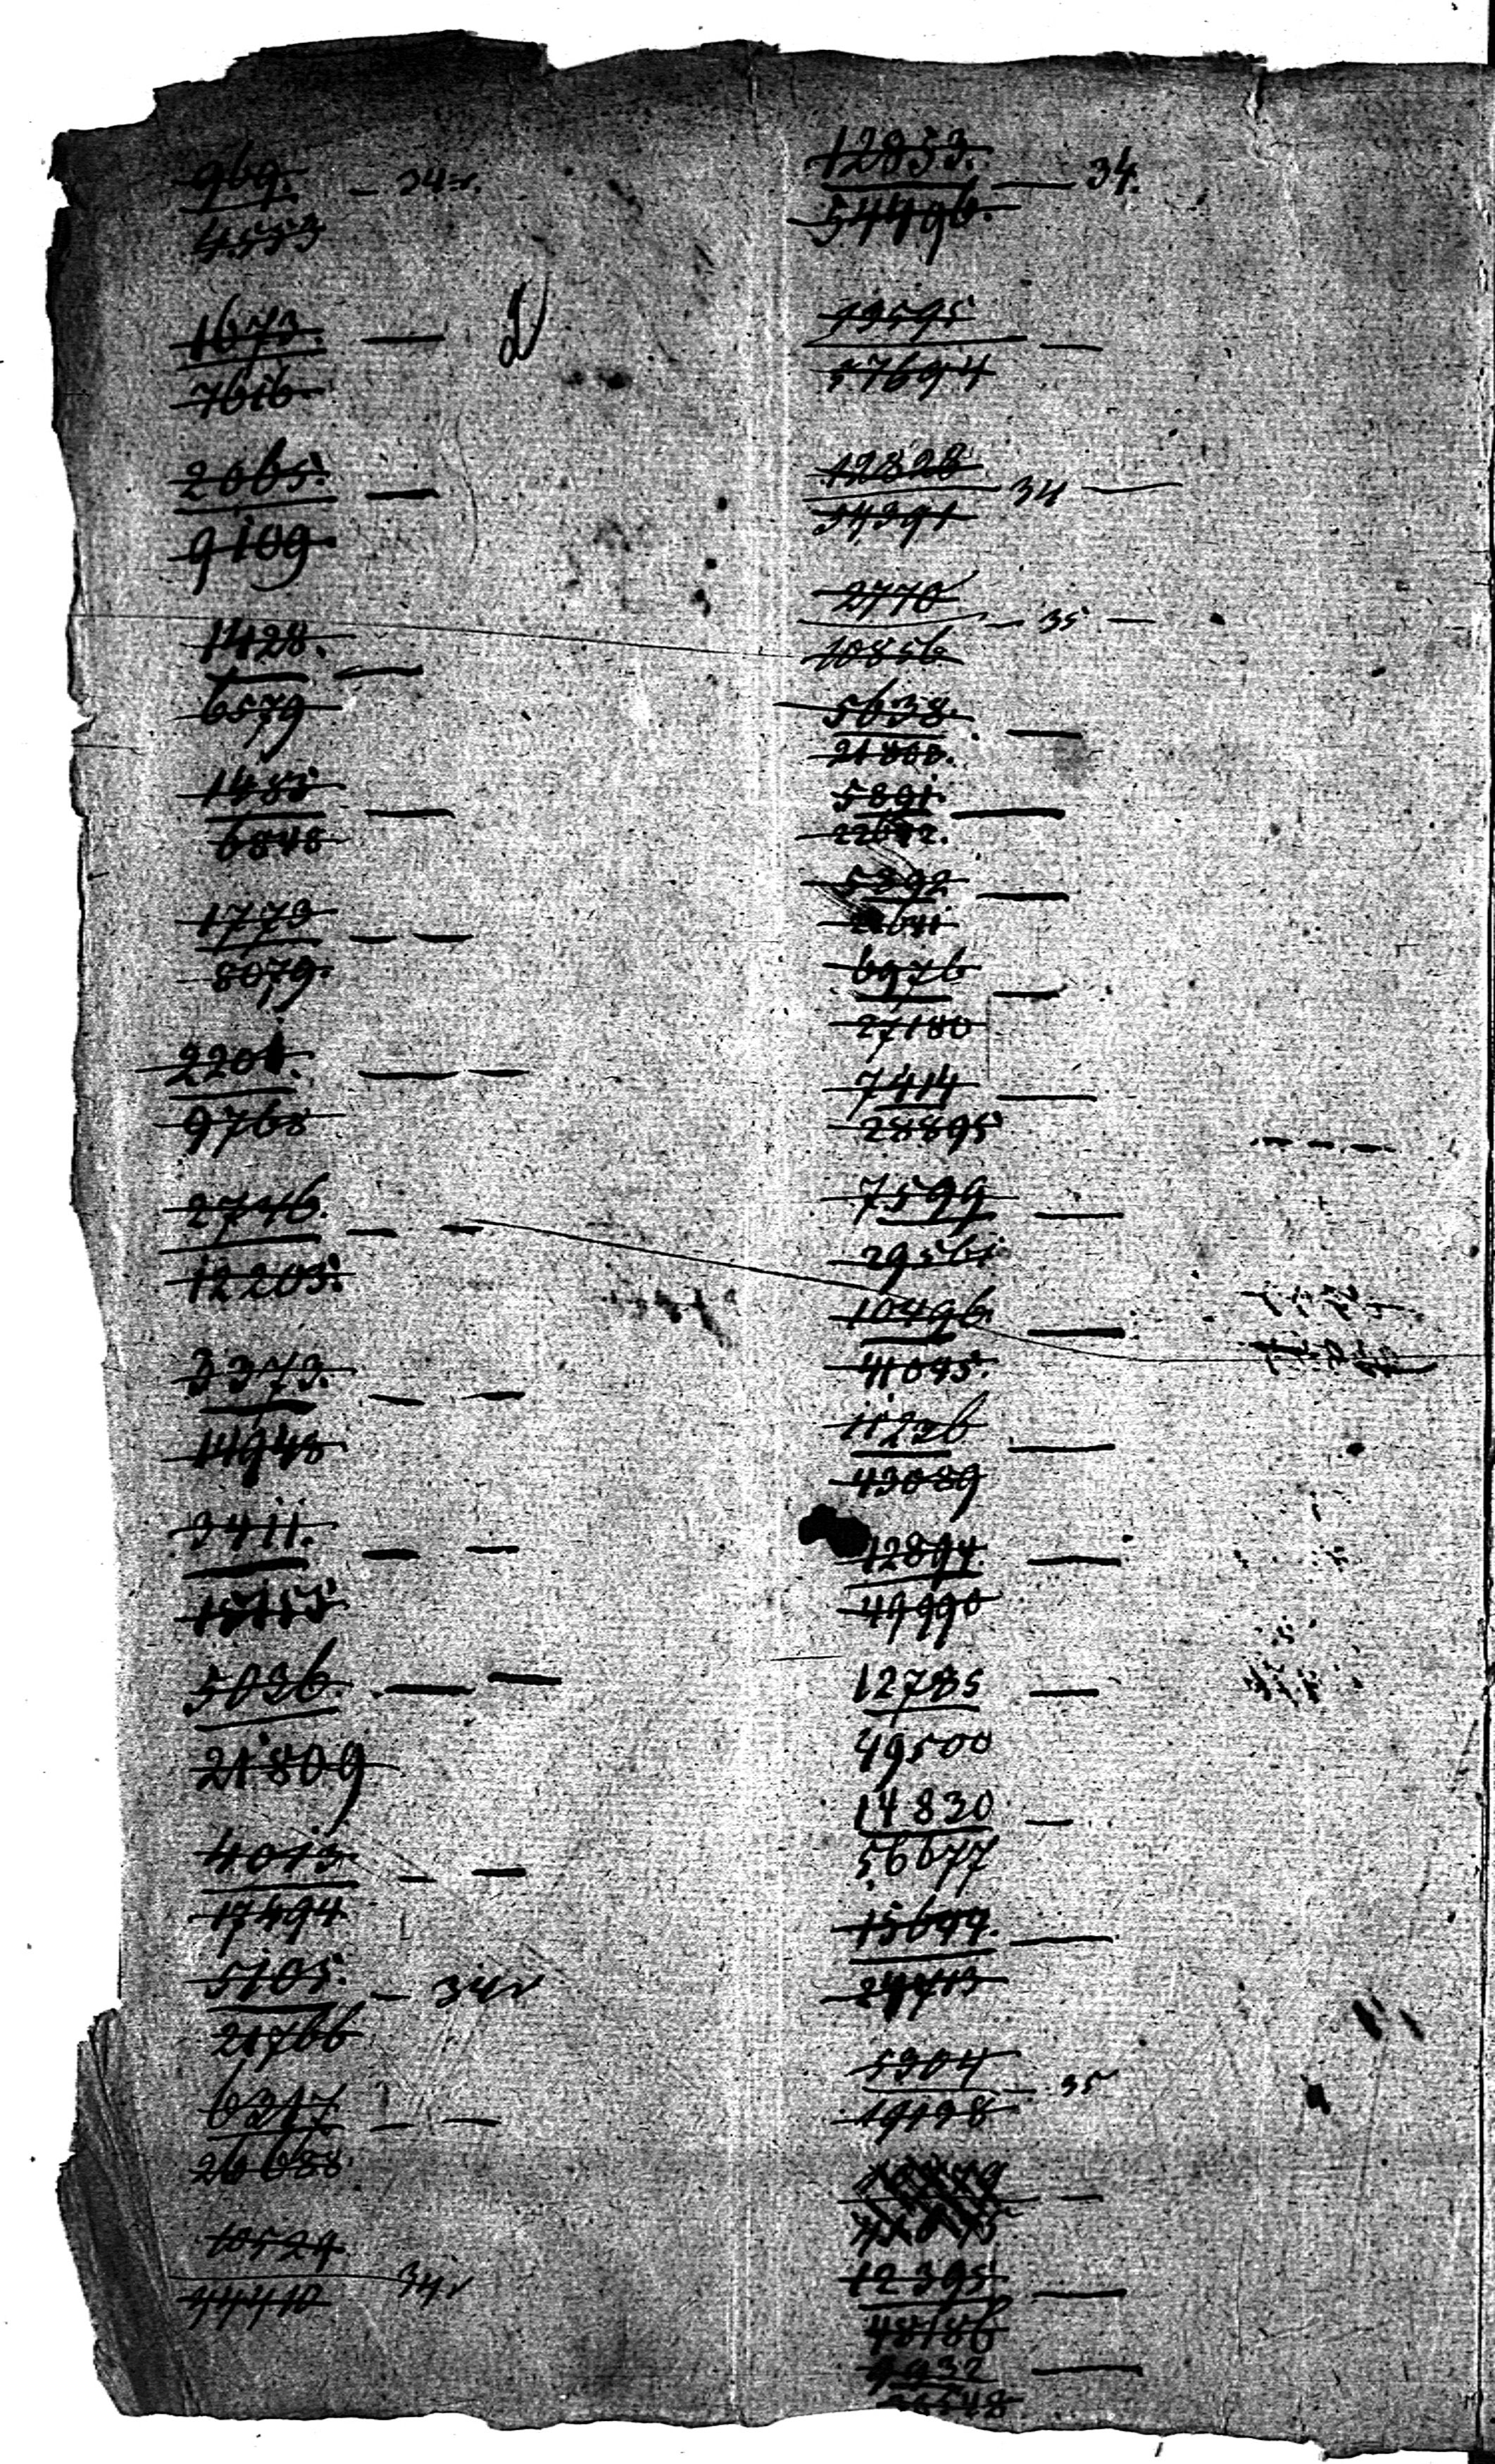 969. — 34r.
4533
1673. —
7616
2065. —
9109
1428. —
6579
1485 —
6848
1773 — —
8079.
2201. — —
9768
2746. — —
12203.
3373. — —
14948
3411. — —
15155
5036. — —
21809
4013. — —
17494
5105. — 34r
21766
6317 — —
26688.
10524
34r
12853. — 34.
54496.
13595 —
57694
12828 34 —
54391
2770 — 35 —
10856
5638. —
21800.
5891. —
22692.
5892 —
22641
6976 —
27180
7414 —
28895
7599 —
29561
10496. —
41045.
11236 —
43089
12894. —
49990
12785 —
49500
14830 —
56677
15699. —
5304 — 35
19198
12395. —
48186
9932 —